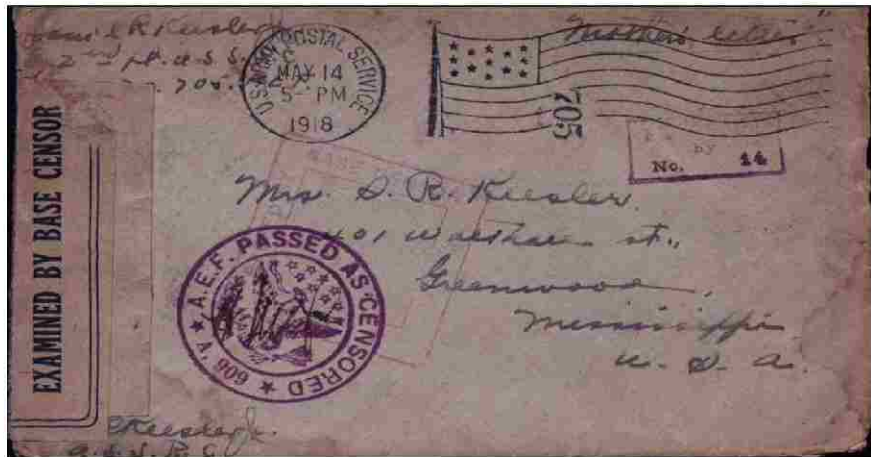 R Keesler
2nd Lt. A.S.S.
705.
U.S. ARMY POSTAL SERVICE
MAY 14
5- PM
1918
705
"Mothers letter"
by
No. 14
EXAMINED BY BASE CENSOR
Mrs. S. R. Keesler.
401 st.,
Greenwood,
Mississippi
U. S. A.
A.E.F. PASSED AS CENSORED
V. 909
Keesler Jr.
A.S.S.R.C.